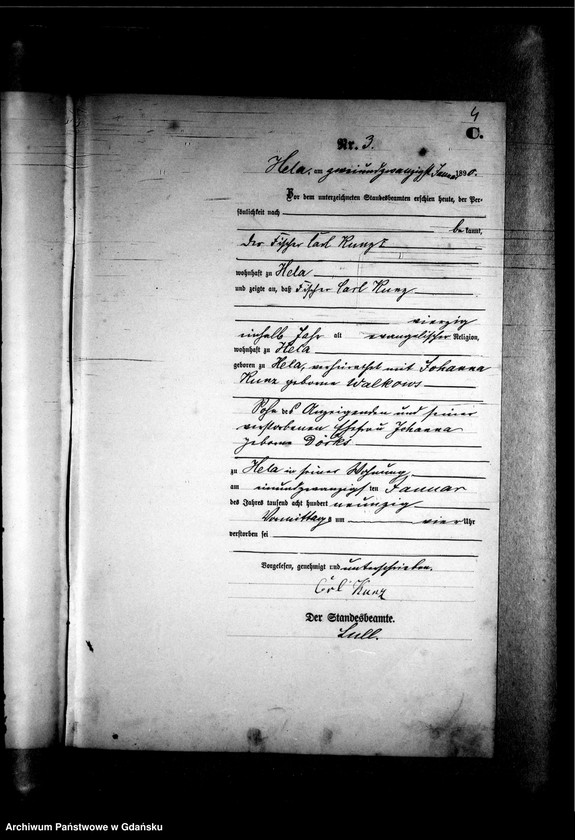 4
C.
Nr. 3.
Hela, am zweiundzwanzigst Januar 1890.
Vor dem unterzeichneten Standesbeamten erschien heute, der Per-
sönlichkeit nach
bekannt,
der Fischer Carl Kunz
wohnhaft zu Hela
und zeigte an, daß Fischer Carl Kunz
vierzig
einhalb Jahr alt evangelischer Religion,
wohnhaft zu Hela
geboren zu Hela, verheirathet mit Johanna
Kunz geborne Walkows
Sohn des Anzeigenden und seiner
verstorbenen Ehefrau Johanna
geborne Dörks
zu Hela in seiner Wohnung
am einundzwanzigsten Januar
des Jahres tausend acht hundert neunzig
Vormittags um vier Uhr
verstorben sei
Vorgelesen, genehmigt und unterschrieben.
Carl Kunz
Der Standesbeamte.
Lull.
Archiwum Państwowe w Gdańsku